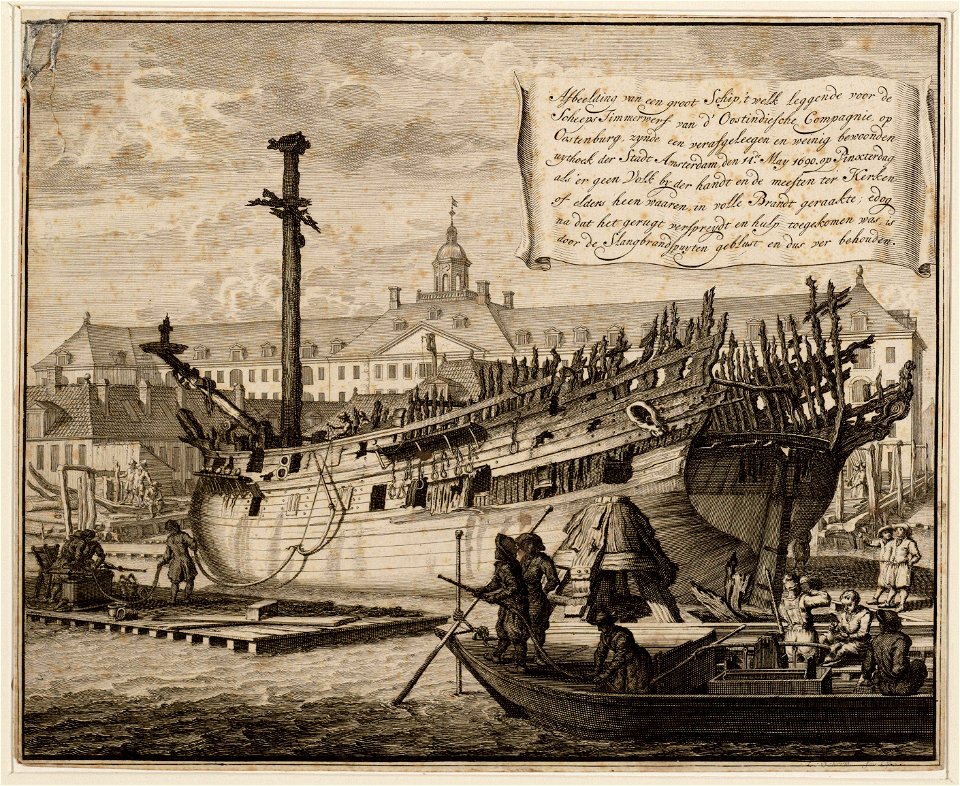 Afbeelding van een groot Schip, 't welk leggende voor de
Scheeps Timmerwerf van d' Oostindiesche Compagnie, op
Oostenburg, zynde een verafgeleegen en weinig bewoonden
uythoek der Stadt Amsterdam, den 11.en May 1690, op Pinxterdag
als 'er geen Volk by der handt en de meesten ter Kerken
of elders heen waaren, in volle Brandt geraakte; edog
na dat het gerugt verspreydt en hulp toegekomen was, is
door de Slangbrandspuyten geblust en dus ver behouden.